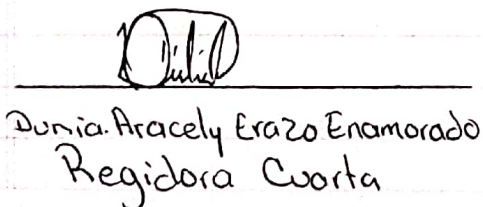 Dunia. Aracely Erazo Enamorado
Regidora Cuorta